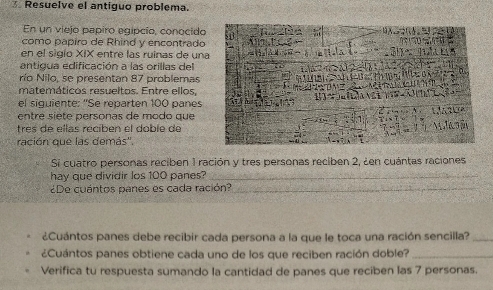 3. Resuelve el antiguo problema.
En un viejo papiro egipcio, conocido
como papiro de Rhind y encontrado
en el siglo XIX entre las ruinas de una
antigua edificación a las orillas del
río Nilo, se presentan 87 problemas
matemáticos resueltos. Entre ellos,
el siguiente: "Se reparten 100 panes
entre siete personas de modo que
tres de ellas reciben el doble de
ración que las demás".
Si cuatro personas reciben 1 ración y tres personas reciben 2, ¿en cuántas raciones
hay que dividir los 100 panes?
¿De cuántos panes es cada ración?
¿Cuántos panes debe recibir cada persona a la que le toca una ración sencilla?
¿Cuántos panes obtiene cada uno de los que reciben ración doble?
Verifica tu respuesta sumando la cantidad de panes que reciben las 7 personas.